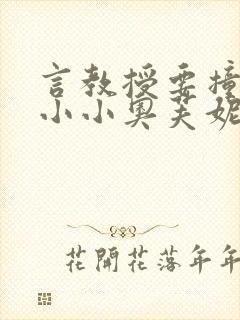 言教授要撞
小小奥芙妮
花開花落年年